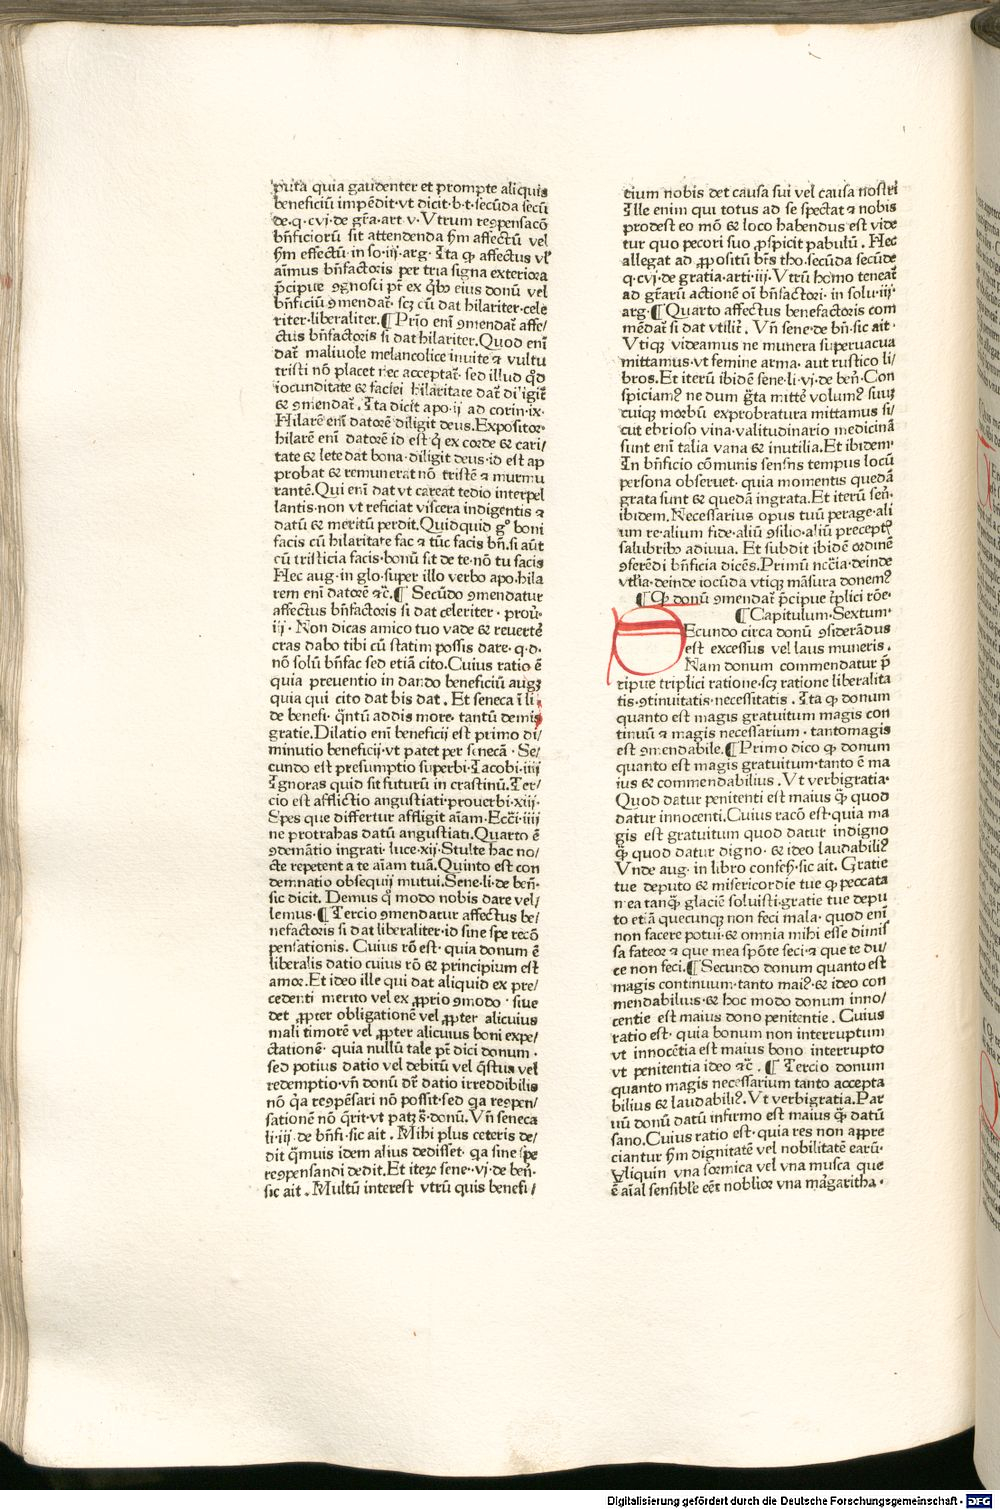 puta quia gaudenter et prompte aliquis
beneficiū impēdit·vt dicit·b·t·secūda secū
de·q·cvj·de gr̄a·art v·Vtrum recpensacō
bn̄ficiorū sit attendenda s̄m affectū vel
s̄m effectū in so·iij·arg· Ita ꝙ affectus vł
aīmus bn̄factoris per tria signa exteriora
p̄cipue ꝯgnosci pr̄t ex qͥbꝰ eius donū vel
bn̄ficiū ꝯmendat̄· scꝫ cū dat hilariter·cele
riter·liberaliter.¶Prīo enī ꝯmendat̄ affe/
ctus bn̄factoris si dat hilariter. Quod enī
dat̄ maliuole melancolice inuite ⁊ vultu
tristi nō placet nec acceptat̄· sed illud qd̄
iocunditate & faciei hilaritate dat̄ diligit̄
& ꝯmendat̄. Ita dicit apo·ij ad corin·ix·
Hilarē enī datorē diligit deus. Expositor·
hilarē enī datorē id est qͥ ex corde & cari/
tate & lete dat bona·diligit deus·id est ap
probat & remunerat nō tristē ⁊ murmu
rantē. Qui enī dat vt careat tedio interpel
lantis·non vt reficiat viscera indigentis ⁊
datū & meritū perdit. Quidquid gͦ boni
facis cū hilaritate fac ⁊ tūc facis bn̄. si aūt
cū tristicia facis·bonū sit de te·nō tu facis
Hec aug·in glo·super illo verbo apo·hila
rem enī datorē ⁊c̄.¶ Secūdo ꝯmendatur
affectus bn̄factoris si dat celeriter· prou̇·
iij· Non dicas amico tuo vade & reuertē
cras dabo tibi cū statim possis dare·q·d·
nō solū bn̄fac sed etiā cito. Cuius ratio ē
quia preuentio in dando beneficiū augꝫ
quia qui cito dat bis dat. Et seneca ī li
de benefi· qn̄tū addis more·tantū demis
gratie. Dilatio enī beneficij est primo di/
minutio beneficij·vt patet per senecā· Se/
cundo est presumptio superbi·Iacobi·iiij
Ignoras quid sit futurū in crastinū. Ter/
cio est afflictio angustiati·prouerbi·xiij·
Spes que differtur affligit aīam. Ecc̄i·iiij
ne protrahas datū angustiati. Quarto ē
ꝯdemātio ingrati·luce·xij·Stulte hac no/
cte repetent a te aīam tuā. Quinto est con
demnatio obsequij mutui. Sene·li·de ben̄·
sic dicit. Demus qͦ modo nobis dare vel/
lemus·¶Tercio ꝯmendatur affectus be/
nefactoris si dat liberaliter·id sine spe recō
pensationis. Cuius rō est· quia donum ē
liberalis datio cuius rō & principium est
amor. Et ideo ille qui dat aliquid ex pre/
cedenti merito vel ex ꝓprio ꝯmodo· siue
det ꝓpter obligationē vel ꝓpter alicuius
mali timorē vel ꝓpter alicuius boni expe/
ctationē· quia nullū tale pt̄ dici donum·
sed potius datio vel debitū vel qͣstus vel
redemptio·vn̄ donū dr̄ datio irreddibilis
nō qͣ recpēsari nō possit·sed qͣ recpen/
sationē nō qͥrit·vt patꝫ s̄·donū. Vn̄ seneca
li·iij·de bn̄fi·sic ait. Mihi plus ceteris de/
dit qͣmuis idem alius dedisset· qͣ sine spe
recpensandi dedit. Et iteꝝ sene··vj·de ben̄·
sic ait. Multū interest vtrū quis benefi/
tium nobis det causa sui vel causa nostri
Ille enim qui totus ad se spectat ⁊ nobis
prodest eo mō & loco habendus est vide
tur quo pecori suo ꝓspicit pabulū. Hec
allegat ad ꝓpositū bt̄s tho·secūda secūde
q·cvj·de gratia·arti·iij·Vtrū homo teneat̄
ad gr̄arū actionē oī bn̄factori·in solu·iij·
arg·¶Quarto affectus benefactoris com
mēdat̄ si dat vtilit̄. Vn̄ sene·de bn̄·sic ait·
Vtiqꝫ videamus ne munera superuacua
mittamus·vt femine arma·aut rustico li/
bros. Et iterū ibidē sene·li·vj·de ben̄·Con
spiciamꝰ ne dum gr̄ta mittē volumꝰ suuꝫ
cuiqꝫ morbū exprobratura mittamus si/
cut ebrioso vina·valitudinario medicinā
sunt enī talia vana & inutilia. Et ibidem·
In bn̄ficio cōmunis sensns tempus locū
persona obseruet· quia momentis quedā
grata sunt & quedā ingrata. Et iterū sen̄·
ibidem. Necessarius opus tuū perage·ali
um re·alium fide·aliū ꝯsilio·aliū preceptꝭ
salubribꝰ adiuua. Et subdit ibidē ordinē
ꝯferēdi bn̄ficia dicēs. Primū nccīa·deinde
vtlīa·deinde iocūda vtiqꝫ māsura donemꝰ
¶Qꝙ donū ꝯmendat̄ p̄cipue tͥplici rōe·
¶Capitulum·Sextum·
Ecundo circa donū ꝯsiderādus
est excessus vel laus muneris.
Nam donum commendatur p̄
cipue triplici ratione·scꝫ ratione liberalita
tis·ꝯtinuitatis·necessitatis. Ita ꝙ donum
quanto est magis gratuitum magis con
tinuū ⁊ magis necessarium·tantomagis
est ꝯmendabile.¶Primo dico ꝙ donum
quanto est magis gratuitum·tanto ē ma
ius & commendabilius. Vt verbigratia·
Quod datur penitenti est maius qͣ̄ quod
datur innocenti. Cuius racō est·quia ma
gis est gratuitum quod datur indigno
qͣ̄ quod datur digno· & ideo laudabiliꝰ
Vnde aug·in libro confess̄·sic ait. Gratie
tue deputo & misericordie tue ꝙ peccata
mea tanqͣ̄ glaciē soluisti·gratie tue depu
to etiā quecunqꝫ non feci mala· quod enī
non facere potui·& omnia mihi esse dimis
sa fateor ⁊ que mea spōte feci·⁊ que te du/
ce non feci.¶Secundo donum quanto est
magis continuum·tanto maiꝰ·& ideo con
mendabilius·& hoc modo donum inno/
centie est maius dono penitentie. Cuius
ratio est· quia bonum non interruptum
vt innocētia est maius bono interrupto
vt penitentia ideo ⁊c̄. ¶ Tercio donum
quanto magis necessarium tanto accepta
bilius & laudabiliꝰ. Vt verbigratia. Par
uū donū datū infirmo est maius qͣ̄ datū
sano. Cuius ratio est·quia res non appre
ciantur s̄m dignitatē vel nobilitatē earū·
Aliquin vna formica vel vna musca que
ē aīal sensibłe eēt nobilior vna mārgaritha·
Digitalisierung gefördert durch die Deutsche Forschungsgemeinschaft · DFG